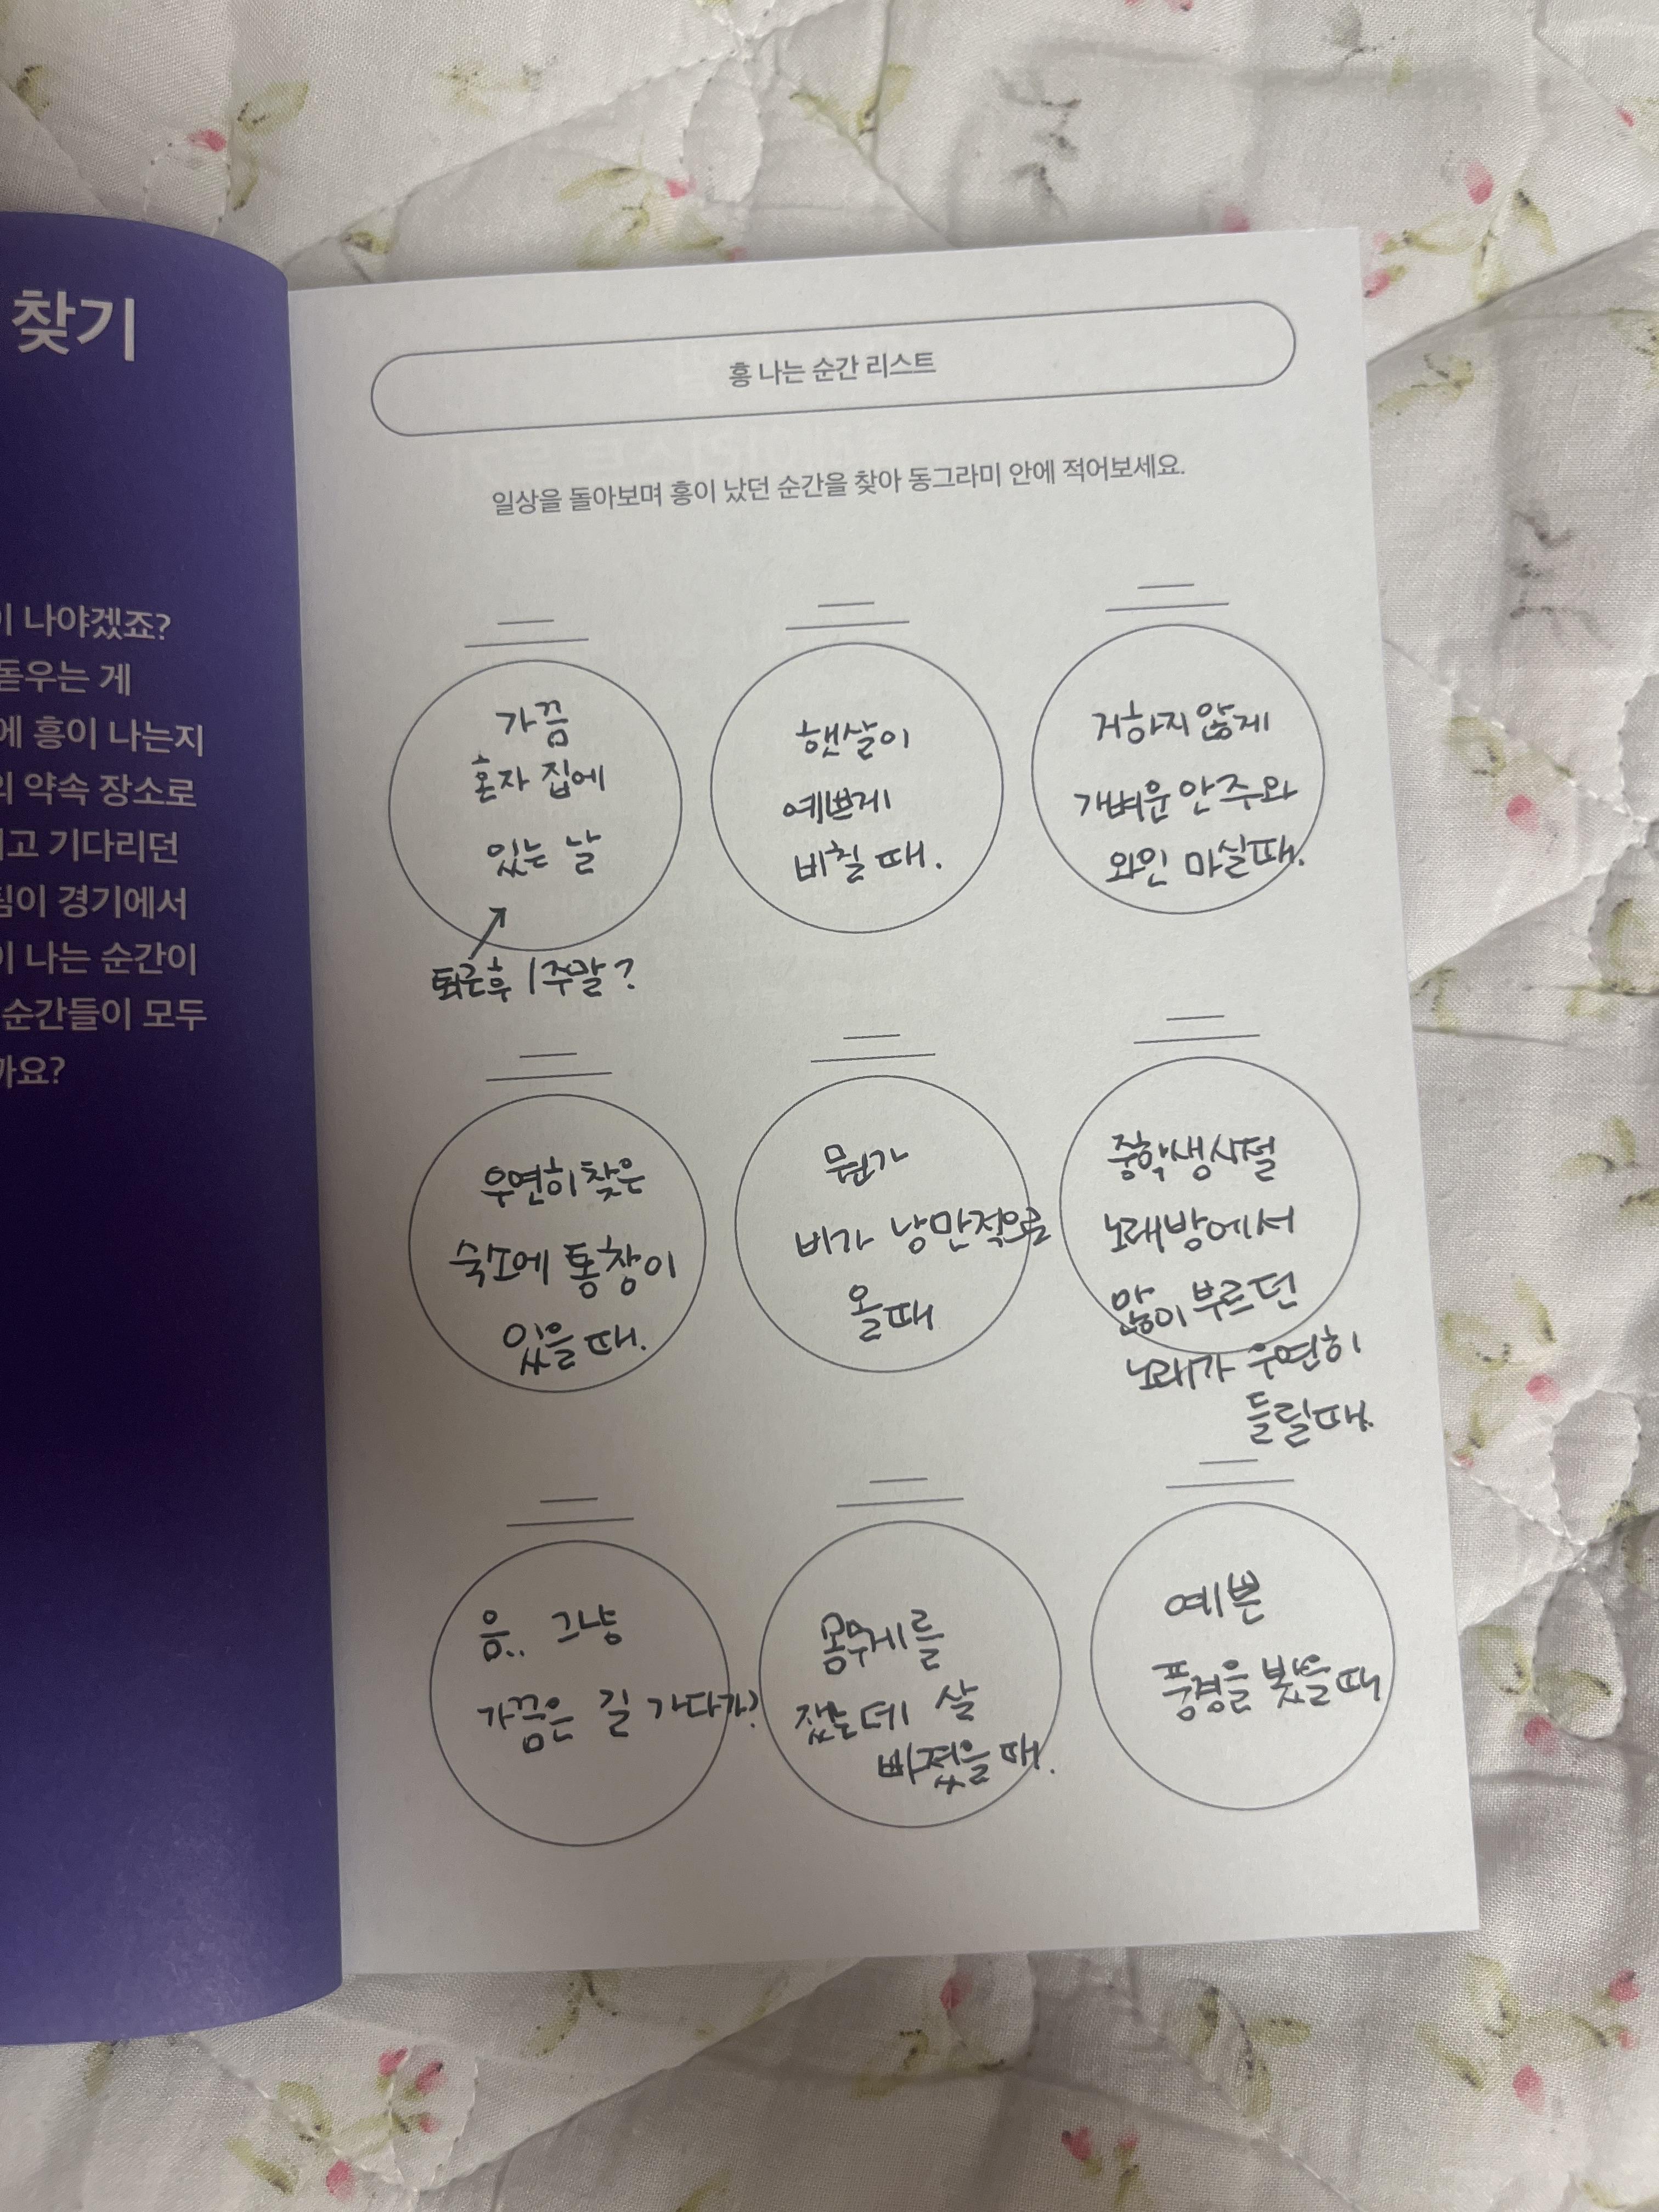 찾기
이 나야겠죠?
돋우는 게
에 흥이 나는지
의 약속 장소로
고 기다리던
팀이 경기에서
이 나는 순간이
순간들이 모두
까요?
흥 나는 순간 리스트
일상을 돌아보며 흥이 났던 순간을 찾아 동그라미 안에 적어보세요.
가끔
혼자 집에
있는 날
퇴근후 / 주말?
햇살이
예쁘게
비칠 때.
거하지 않게
가벼운 안주와
와인 마실때.
우연히 찾은
숙소에 통창이
있을 때.
뭔가
비가 낭만적으로
올때
중학생시절
노래방에서
많이 부르던
노래가 우연히
들릴때.
음.. 그냥
가끔은 길 가다가?
몸무게를
쟀는데 살
빠졌을 때.
예쁜
풍경을 봤을때